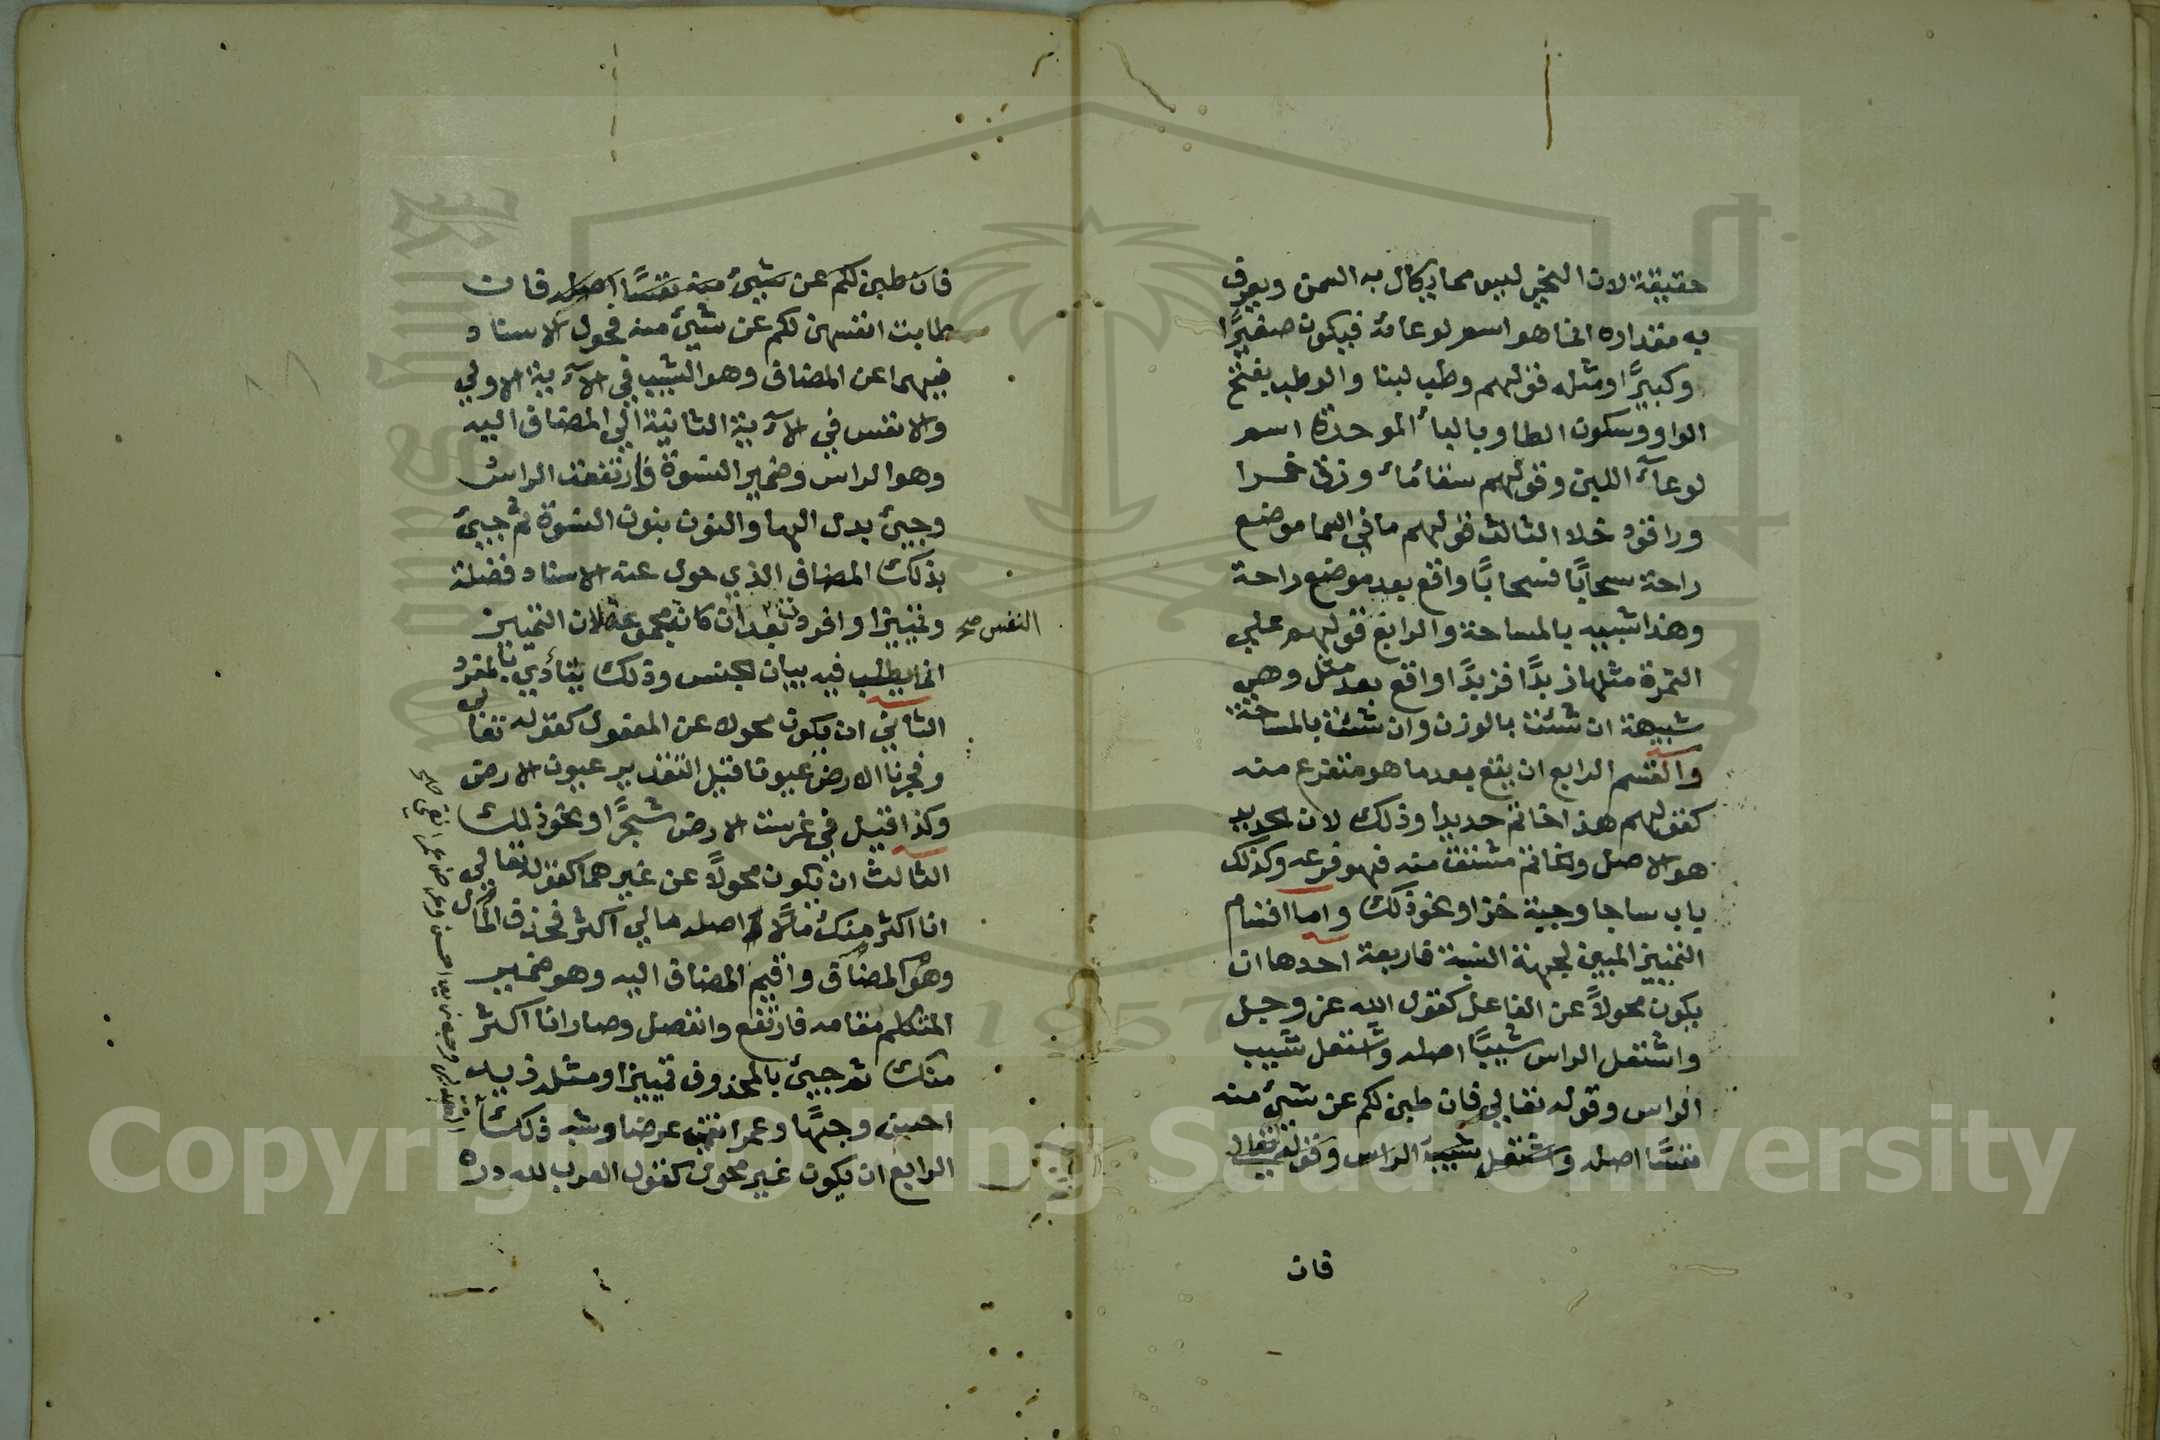 حقيقة لان النحي ليس مما يكال به السمن ويعرف
به مقداره انما هو اسم لوعائه فيكون صغيرًا
وكبيرًا ومثله قولهم وطب لبنا والوطب بفتح
الواو وسكون الطا وبالبأ الموحدة اسم
لوعآء اللبن وقولهم سقا مأ وزق خمرا
وراقود خلا الثالث قولهم ما في السما موضع
راحة سحابًا فسحابًا واقع بعد موضع راحة
وهذا شبيه بالمساحة والرابع قولهم علي
التمرة مثلها زبدًا فزبدًا واقع بعد مثل وهي
شبيهة ان شئت بالوزن وان شئت بالمساحة
والقسم الرابع ان يقع بعد ما هو متفرع منه
كقولهم هذا خاتم حديدا وذلك لان الحديد
هو الاصل والخاتم مشتق منه فهو فرعه وكذلك
باب ساجا وجبة خزا ونحو ذلك واما اقسام
التمييز المبين لجهة النسبة فاربعة احدها ان
يكون محولاً عن الفاعل كقول الله عز وجل
واشتعل الراس شيبًا اصله واشتعل شيب
الراس وقوله تعالي فان طبن لكم عن شيئ منه
نفسًا اصله واشتعل شيب الراس وقوله تعالي
فان
فان طبن لكم عن شيئ منه نفسًا اصله فان
طابت انفسهن لكم عن شيئ منه فحول الاسناد
فيهما عن المضاف وهو الشيب في الآية الاولي
والانفس في الآية الثانية الي المضاف اليه
وهو الراس وضمير النسوة فارتفعت الراس
وجيئ بدل الها والنون بنون النسوة ثم جيئ
بذلك المضاف الذي حول عنه الاسناد فضلة
وتمييزا وافردت بعد ان كانت مجموعة لان التمييز
النفس صح
انما يطلب فيه بيان الجنس وذلك يتأدي بالمفرد
الثاني ان يكون محولا عن المفعول كقوله تعالي
وفجرنا الارض عيونا قيل التقدير عيون الارض
وكذا قيل في غرست الارض شجرًا ونحو ذلك
الثالث ان يكون محولاً عن غيرهما كقوله تعالي
انا اكثر منك مالاً اصله مالي اكثر فحذف المال
وهو المضاف واقيم المضاف اليه وهو ضمير
المتكلم مقامه فارتفع وانفصل وصار انا اكثر
منك ثم جيئ بالمحذوف تمييزا ومثله زيد
احسن وجهًا وعمرا نقي عرضا وشبه ذلك
الرابع ان يكون غير محول كقول العرب لله دره